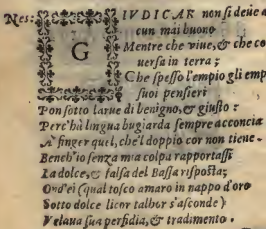 Nes: GIVDICAR non si deue a
cun mai buono
Mentre che viue, & che co
uersa in terra;
Che spesso l'empio gli emp
suoi pensieri
Pon sotto larue di benigno, & giusto:
Perc'hà lingua bugiarda sempre acconcia
A' finger quel, che'l doppio cor non tiene.
Beneh'io senza mia colpa rapportassi
La dolce, & falsa del Bassa risposta;
Ond'ei (qual tosco amaro in nappo d'oro
Sotto dolce licor talhor s'asconde)
Velaua sua perfidia, & tradimento.